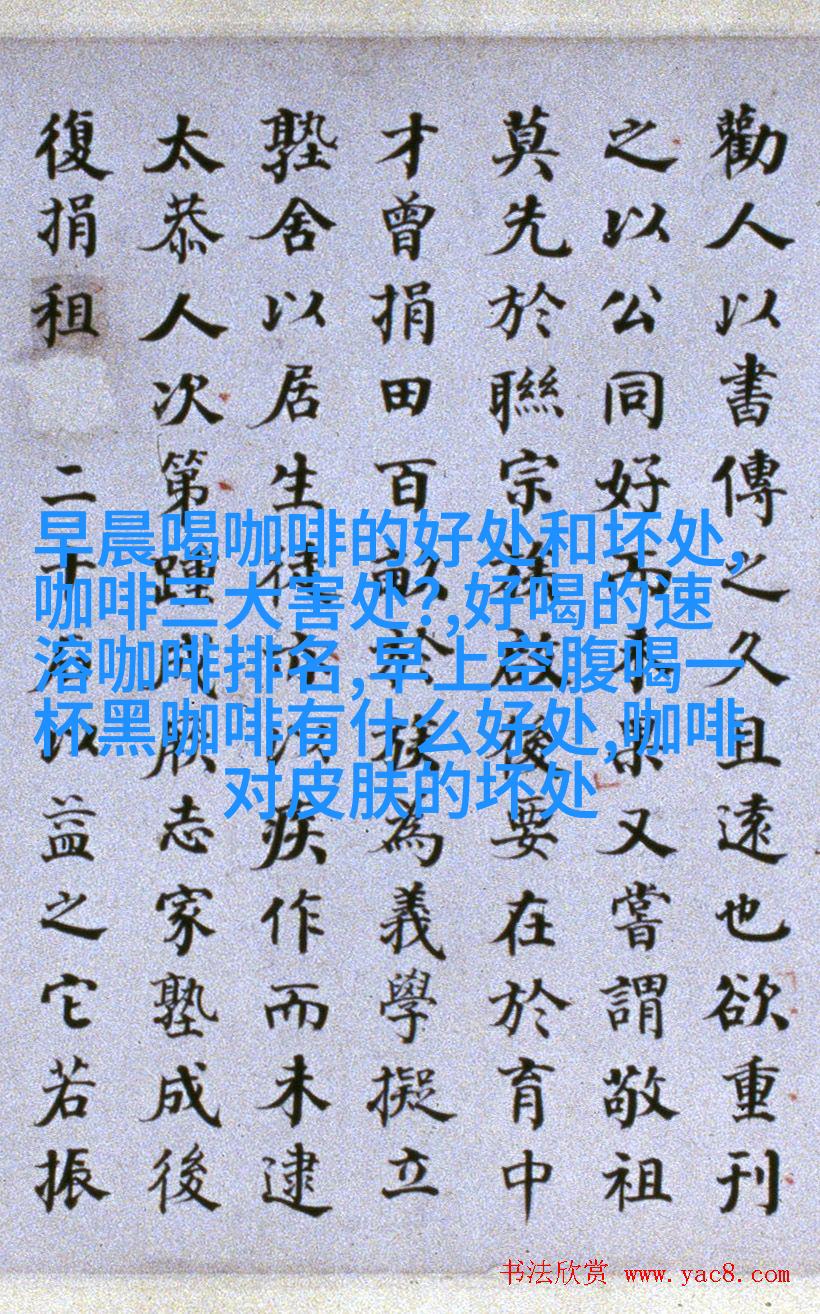 勸人以書傳之久且遠也欲重刊
之以公同好而未果又嘗謂敬祖
莫先於聯宗族啟後要在於育中
才曾捐田百畝於族為義學擬立
塾舍以居生徒以疾作而未逮
太恭人次第踵成厥志家塾成後
復捐租二十石以益之它若振
早晨喝咖啡的好处和坏处,
咖啡三大害处?,好喝的速
溶咖啡排名,早上空腹喝一
杯黑咖啡有什么好处,咖啡
对皮肤的坏处
书法欣赏 www.yac8.com